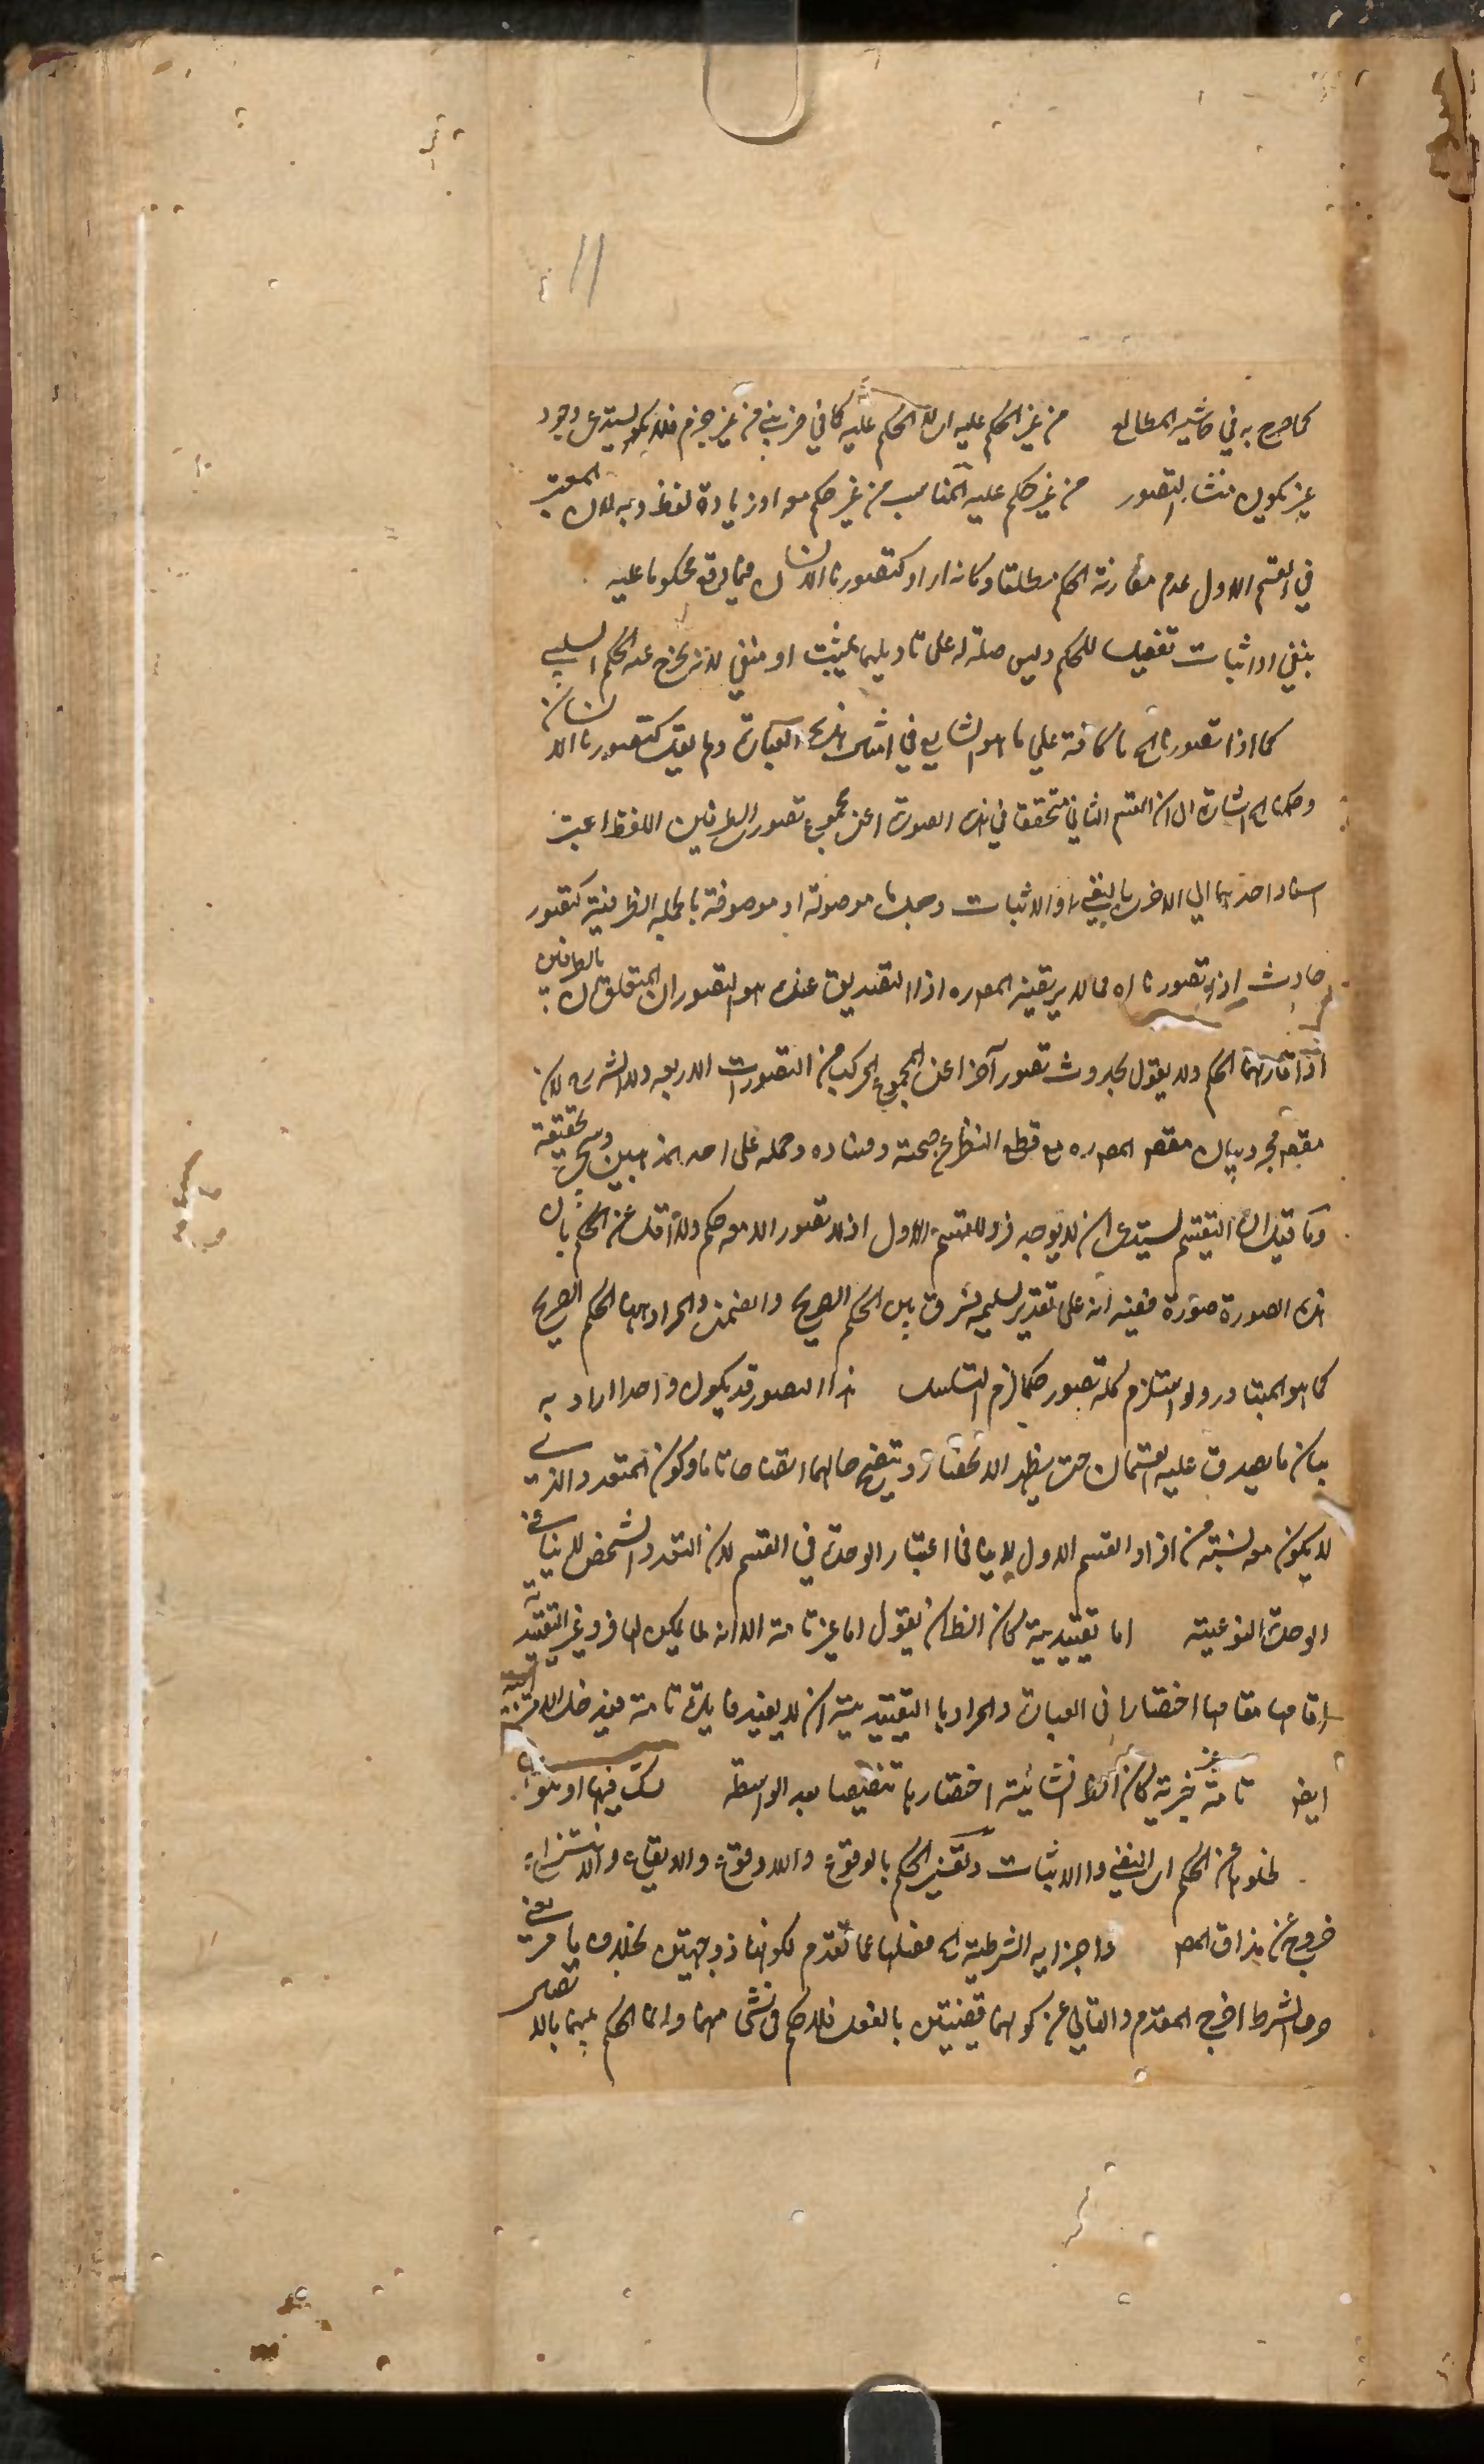 ١١
كما صرح به في حاشية المطالع من غير الحكم عليه اى الحكم عليه كما في ضربني من غير جزم فلا يستدعى وجود
غير يكون منشاء التصور من غير حكم عليه المناسب من غير حكم معه او زيادة لفظ وبه لان المعتبر
في القسم الاول عدم مقارنة الحكم مطلقا وكانه اراد كتصورنا الانسان فيما لم يقع محكوما عليه
بنفي او اثبات تفصيل للحكم وليس صلة له على تاويليهما بمثبت او منفي لانه يخرج عنه الحكم السلبي
كما اذا تصورنا الخ ما كافة على ما هو الشايع في امثال هذه العبارة ولم يقل كتصورنا الانسان
اشارة الى ان القسم الثاني متحقق في هذه الصورة اعنى مجموع تصور الطرفين اللفظ اعيت
اسناد احدهما الى الاخر بالنفي او الاثبات وجعل ما موصولة او موصوفة بالجملة الظرفية كتصور
حادث اذ تصورنا اه مما لا يرتضيه المص ره اذ التصديق عنده هو التصوران المتعلقان بالطرفين
اذا قارنهما الحكم ولا يقول بحدوث تصور آخر اعنى المجموع المركب من التصورات الاربعة ولا الشرح لان
مقصده مجرد بيان مقصد المص ره مع قطع النظر عن صحته وفساده وحمله على احد المذهبين وسيجئ تحقيقه
وما قيل ان التقسيم يستدعى ان لا يوجد فرد للقسم الاول اذ لا تصور الا معه حكم ولا اقل من الحكم بان
هذه الصورة صورة ففيه انه على تقدير تسليمه فرق بين الحكم الصريح والضمنى والمراد ههنا الحكم الصريح
كما هو المتبادر ولو استلزم كل تصور حكما لزم التسلسل هذا التصور قد يكون واحدا اراد به
بيان ما يصدق عليه القسمان حتى يظهر الانحصار ويتضح حالهما اتضاحا تاما وكون المتعدد الذي
لا يكون معه نسبة من افراد القسم الاول لا ينافي اعتبار الوحدة في القسم لان التعدد الشخصى لا ينافي
الوحدة النوعية اما تقييدية كان الظ ان يقول اما غير تامة الا انه لما يكن لها فرد غير التقييدية
اقامها مقامها اختصارا في العبارة والمراد بالتقييدية ان لا يفيد فايدة تامة فيدخل الامتزاجية
ايضا تامة غير خبرية كان الظ انشائية اختصار ما تفصيها بعد الواسطة شك فيها او هو
لخلوها عن الحكم اى النفي والاثبات وتفسير الحكم بالوقوع واللاوقوع والايقاع والانتزاع
خروج عن مذاق المص واجزاء الشرطية الخ فصلها عما تقدم لكونها ذو جهتين بخلاف ما مر يعنى
حرف الشرط اخرج المقدم والتالي عن كونهما قضيتين بالفعل فلا حكم في شئ منهما وانما الحكم بينهما بالاتصال